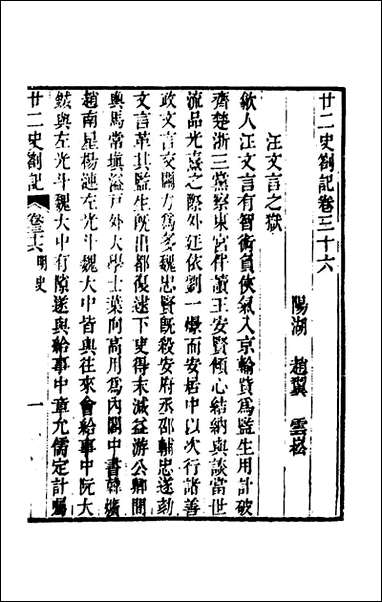 廿二史劄記卷三十六
陽湖 趙翼 雲崧
汪文言之獄
歙人汪文言有智術負俠氣入京輸貲爲監生用計破
齊楚浙三黨察東宮伴讀王安賢傾心結納與談當世
流品光熹之際外廷依劉一燝而安居中以次行諸善
政文言交關力爲多魏忠賢既殺安府丞邵輔忠遂劾
文言革其監生既出都復逮下吏得末減益游公卿間
輿馬常塡溢戸外大學士葉向高用爲內閣中書韓爌
趙南星楊漣左光斗魏大中皆與往來會給事中阮大
鋮與左光斗魏大中有隙遂與給事中章允儒定計囑
廿二史劄記
卷三十六 明史
一